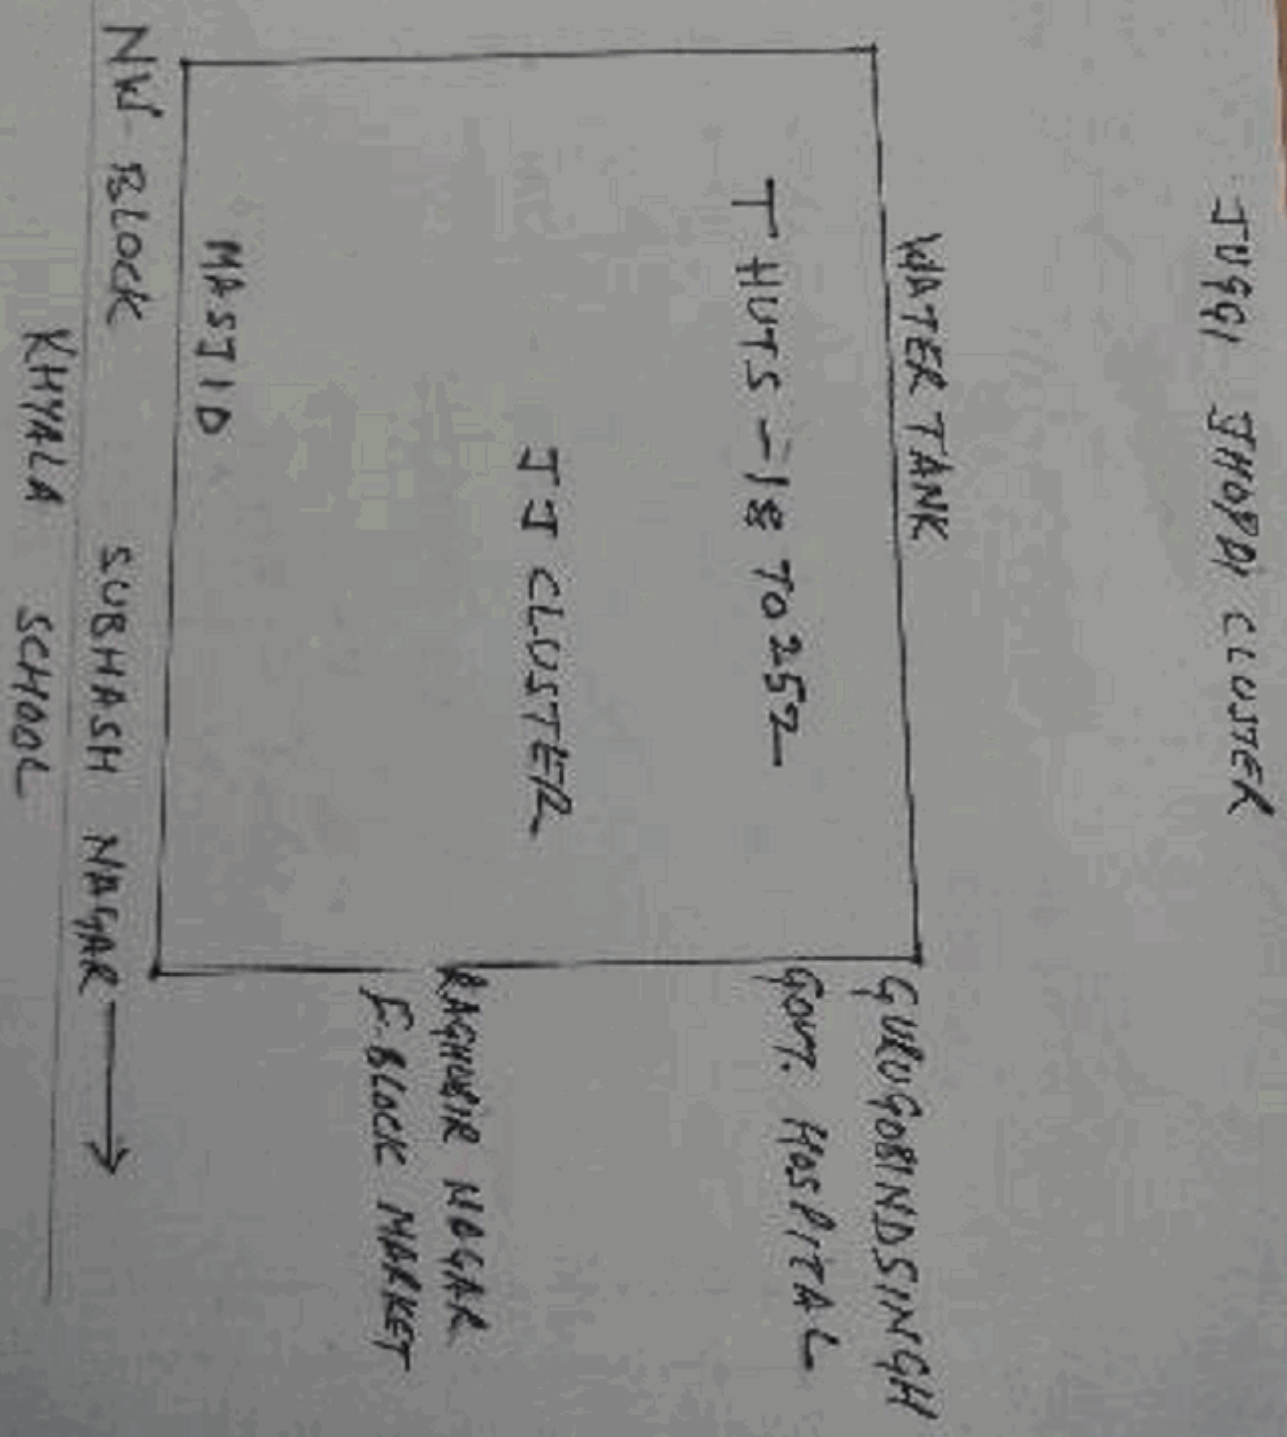 JUGGI JHOPDI CLUSTER
WATER TANK
T HUTS - 18 TO 252
GURUGOBINDSINGH
GOVT. HOSPITAL
JJ CLUSTER
RAGHUBIR NAGAR
F-BLOCK MARKET
MASJID
NW-BLOCK SUBHASH NAGAR →
KHYALA SCHOOL